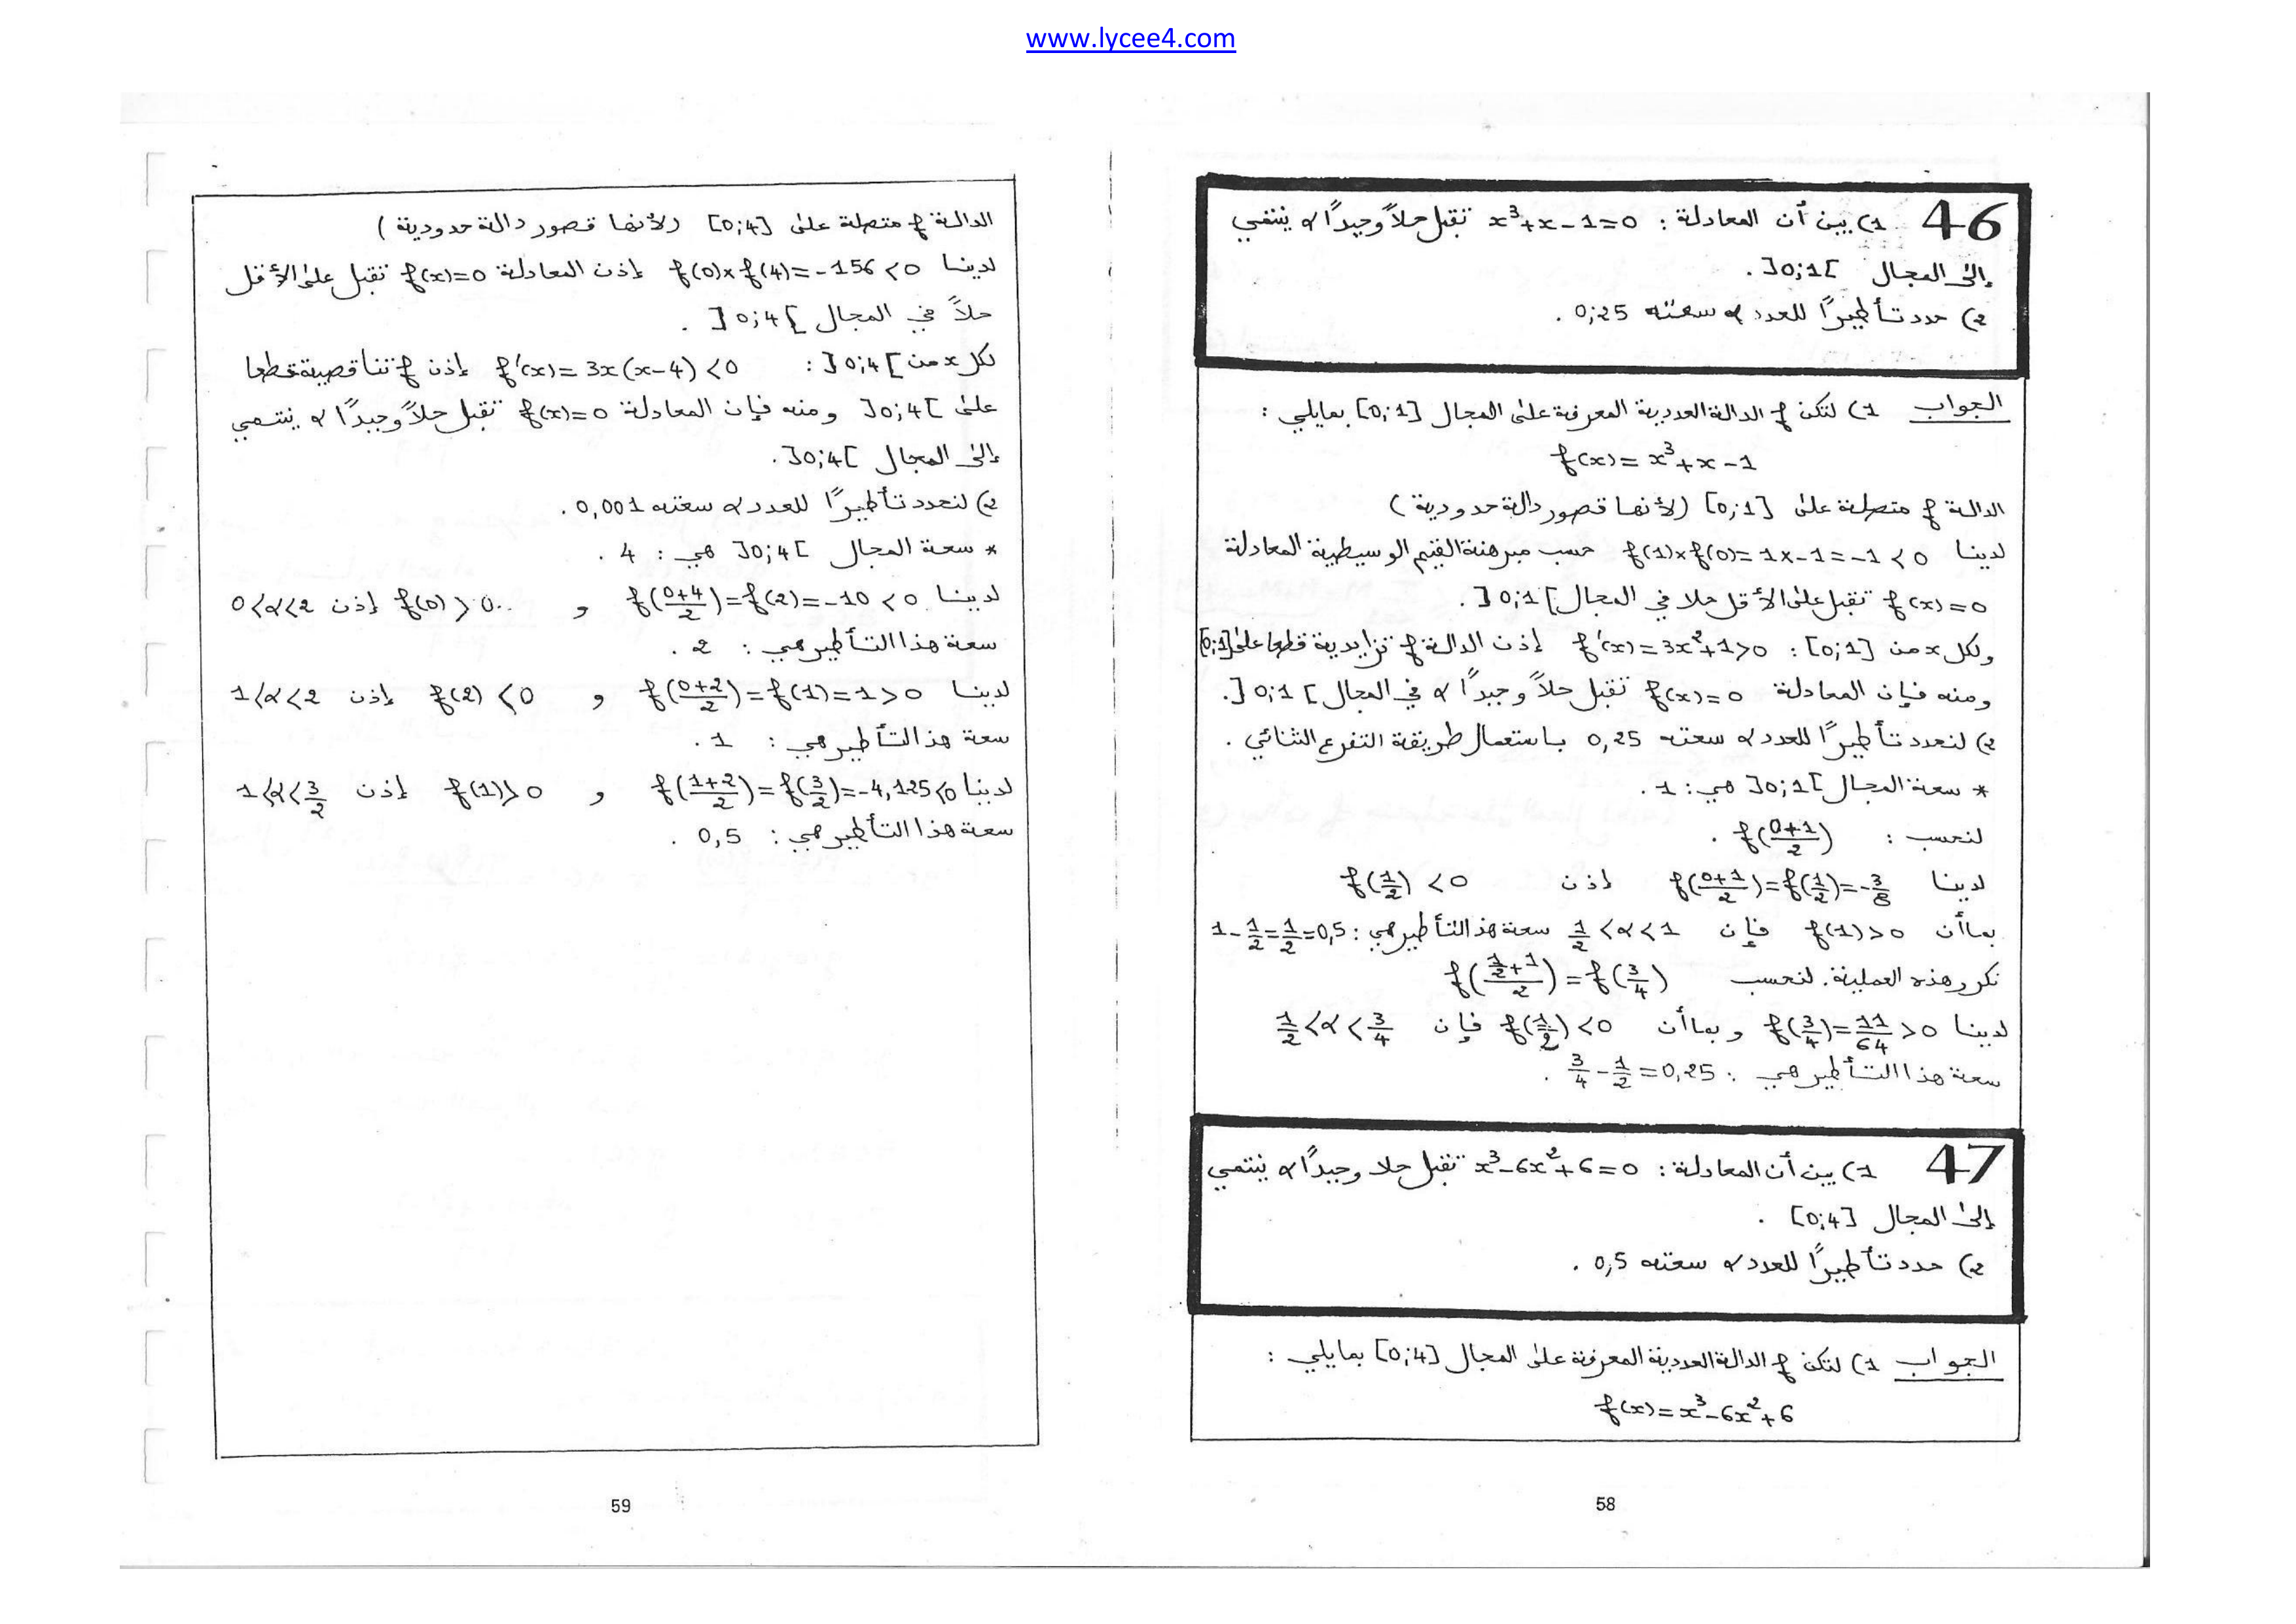 www.lycee4.com
46 1) بين أن المعادلة : x³+x-1=0 تقبل حلاً وحيدًا α ينتمي
إلى المجال ]0;1[ .
2) حدد تأطيرًا للعدد α سعته 0,25 .
الجواب 1) لتكن f الدالة العددية المعرفة على المجال [0;1] بمايلي :
f(x)= x³+x-1
الدالة f متصلة على [0;1] (لأنها قصور دالة حدودية)
لدينا f(1)×f(0)= 1×-1=-1<0 حسب مبرهنة القيم الوسيطية المعادلة
f(x)=0 تقبل على الأقل حلا في المجال ]0;1[ .
ولكل x من [0;1] : f'(x)=3x²+1>0 إذن الدالة f تزايدية قطعا على [0;1]
ومنه فإن المعادلة f(x)=0 تقبل حلاً وحيدًا α في المجال ]0;1[ .
2) لنحدد تأطيرًا للعدد α سعته 0,25 باستعمال طريقة التفرع الثنائي .
* سعة المجال ]0;1[ هي : 1 .
لنحسب : f((0+1)/2) .
لدينا f((0+1)/2)=f(1/2)=-3/8 إذن f(1/2)<0
بما أن f(1)>0 فإن 1/2<α<1 سعة هذا التأطير هي : 1-1/2=1/2=0,5
نكرر هذه العملية. لنحسب f((1/2+1)/2)=f(3/4)
لدينا f(3/4)=11/64>0 وبما أن f(1/2)<0 فإن 1/2<α<3/4
سعة هذا التأطير هي : 3/4-1/2=0,25 .
47 1) بين أن المعادلة : x³-6x²+6=0 تقبل حلا وحيدًا α ينتمي
إلى المجال [0;4] .
2) حدد تأطيرًا للعدد α سعته 0,5 .
الجواب 1) لتكن f الدالة العددية المعرفة على المجال [0;4] بمايلي :
f(x)=x³-6x²+6
58
الدالة f متصلة على [0;4] (لأنها قصور دالة حدودية)
لدينا f(0)×f(4)=-156<0 إذن المعادلة f(x)=0 تقبل على الأقل
حلاً في المجال ]0;4[ .
لكل x من ]0;4[ : f'(x)=3x(x-4)<0 إذن f تناقصية قطعا
على ]0;4[ ومنه فإن المعادلة f(x)=0 تقبل حلاً وحيدًا α ينتمي
إلى المجال ]0;4[ .
2) لنحدد تأطيرًا للعدد α سعته 0,001 .
* سعة المجال ]0;4[ هي : 4 .
لدينا f((0+4)/2)=f(2)=-10<0 و f(0)>0 إذن 0<α<2
سعة هذا التأطير هي : 2 .
لدينا f((0+2)/2)=f(1)=1>0 و f(2)<0 إذن 1<α<2
سعة هذا التأطير هي : 1 .
لدينا f((1+2)/2)=f(3/2)=-4,125<0 و f(1)>0 إذن 1<α<3/2
سعة هذا التأطير هي : 0,5 .
59